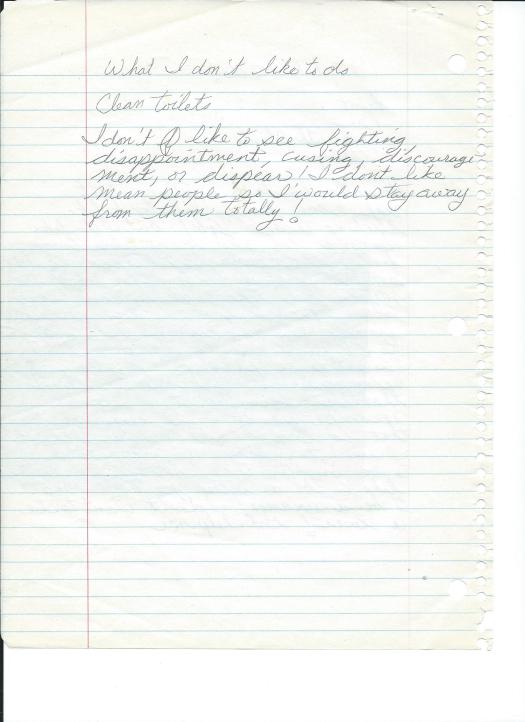 What I don't like to do
Clean toilets
I don't like to see fighting,
disappointment, cusing, discourage-
ment, or dispear! I dont like
mean people so I would stay away
from them totally!